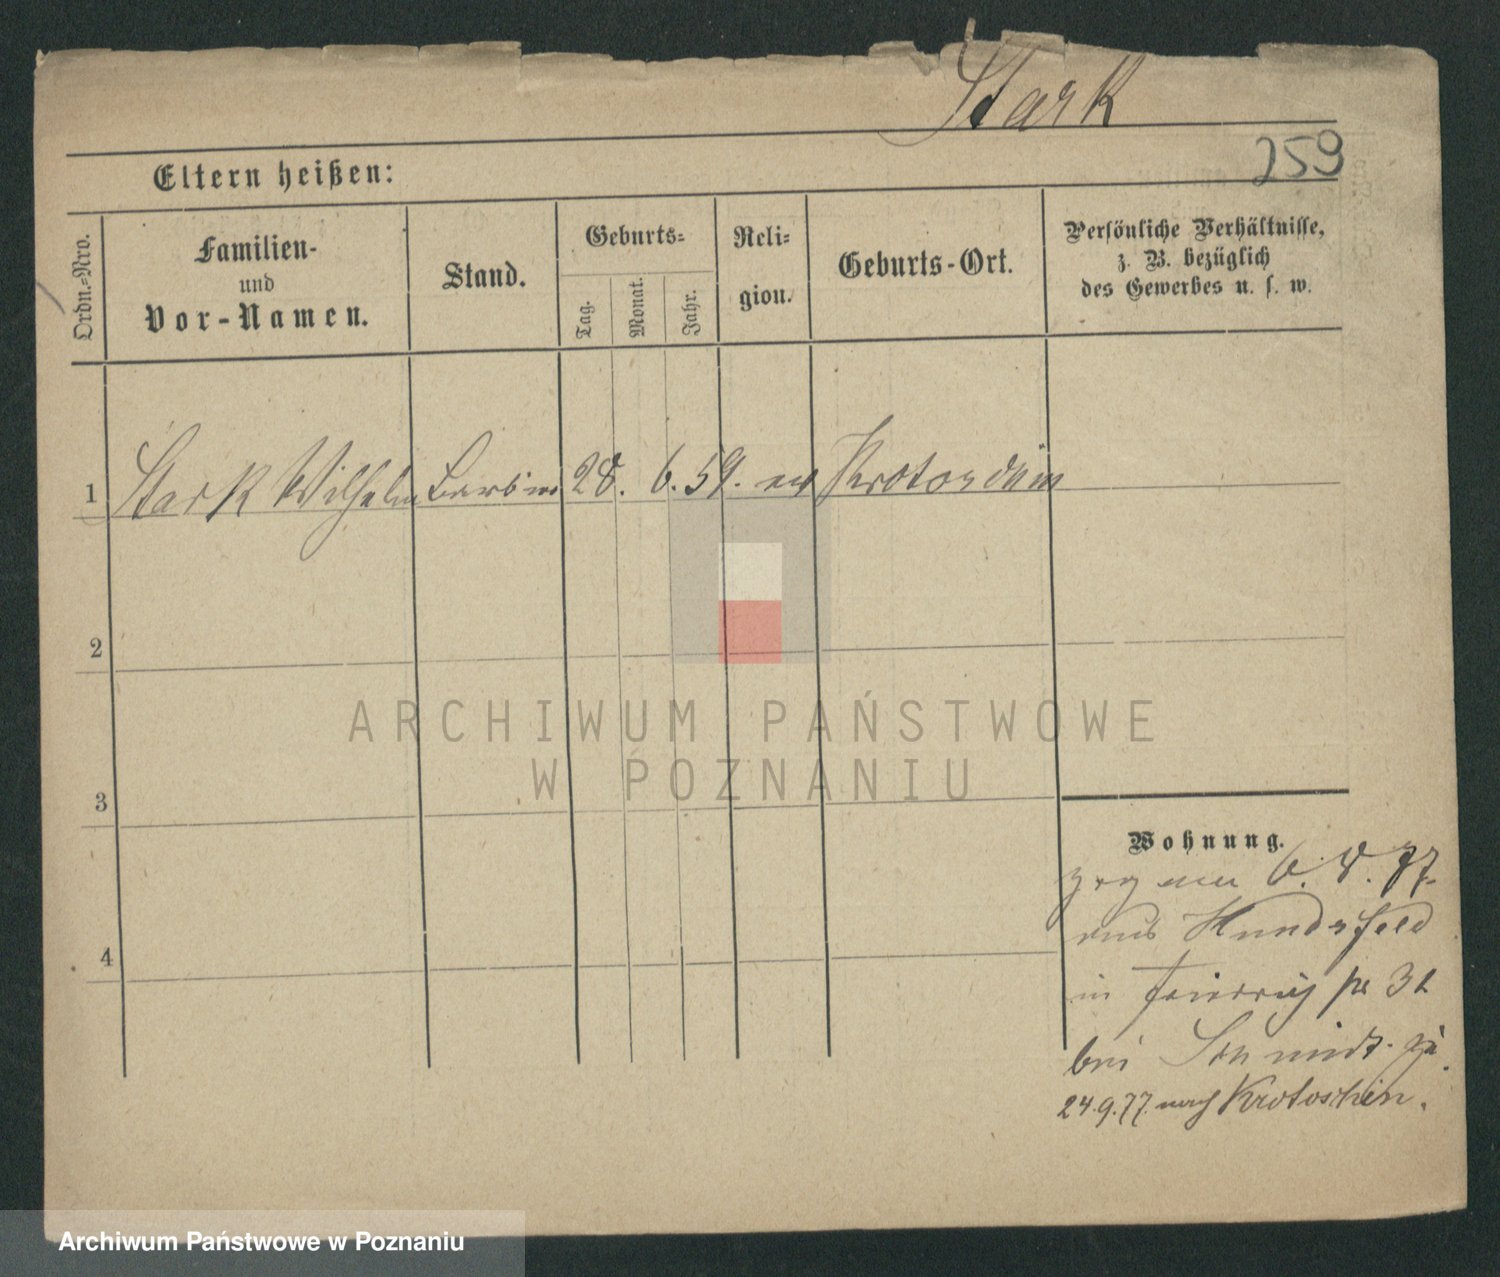 Stark
259
Eltern heißen:
Ordn.-Nro.
Familien-
und
Vor-Namen.
Stand.
Geburts-
Tag.
Monat.
Jahr.
Reli-
gion.
Geburts-Ort.
Persönliche Verhältnisse,
z. B. bezüglich
des Gewerbes u. s. w.
1 Stark Wilhelm Barbier 28. 6. 59. ev Krotoschin
2
3
4
ARCHIWUM PAŃSTWOWE
W POZNANIU
Wohnung.
zog am 6. 8. 77.
aus Hundsfeld
in
bei Schmidt
24.9.77. nach Krotoschin.
Archiwum Państwowe w Poznaniu